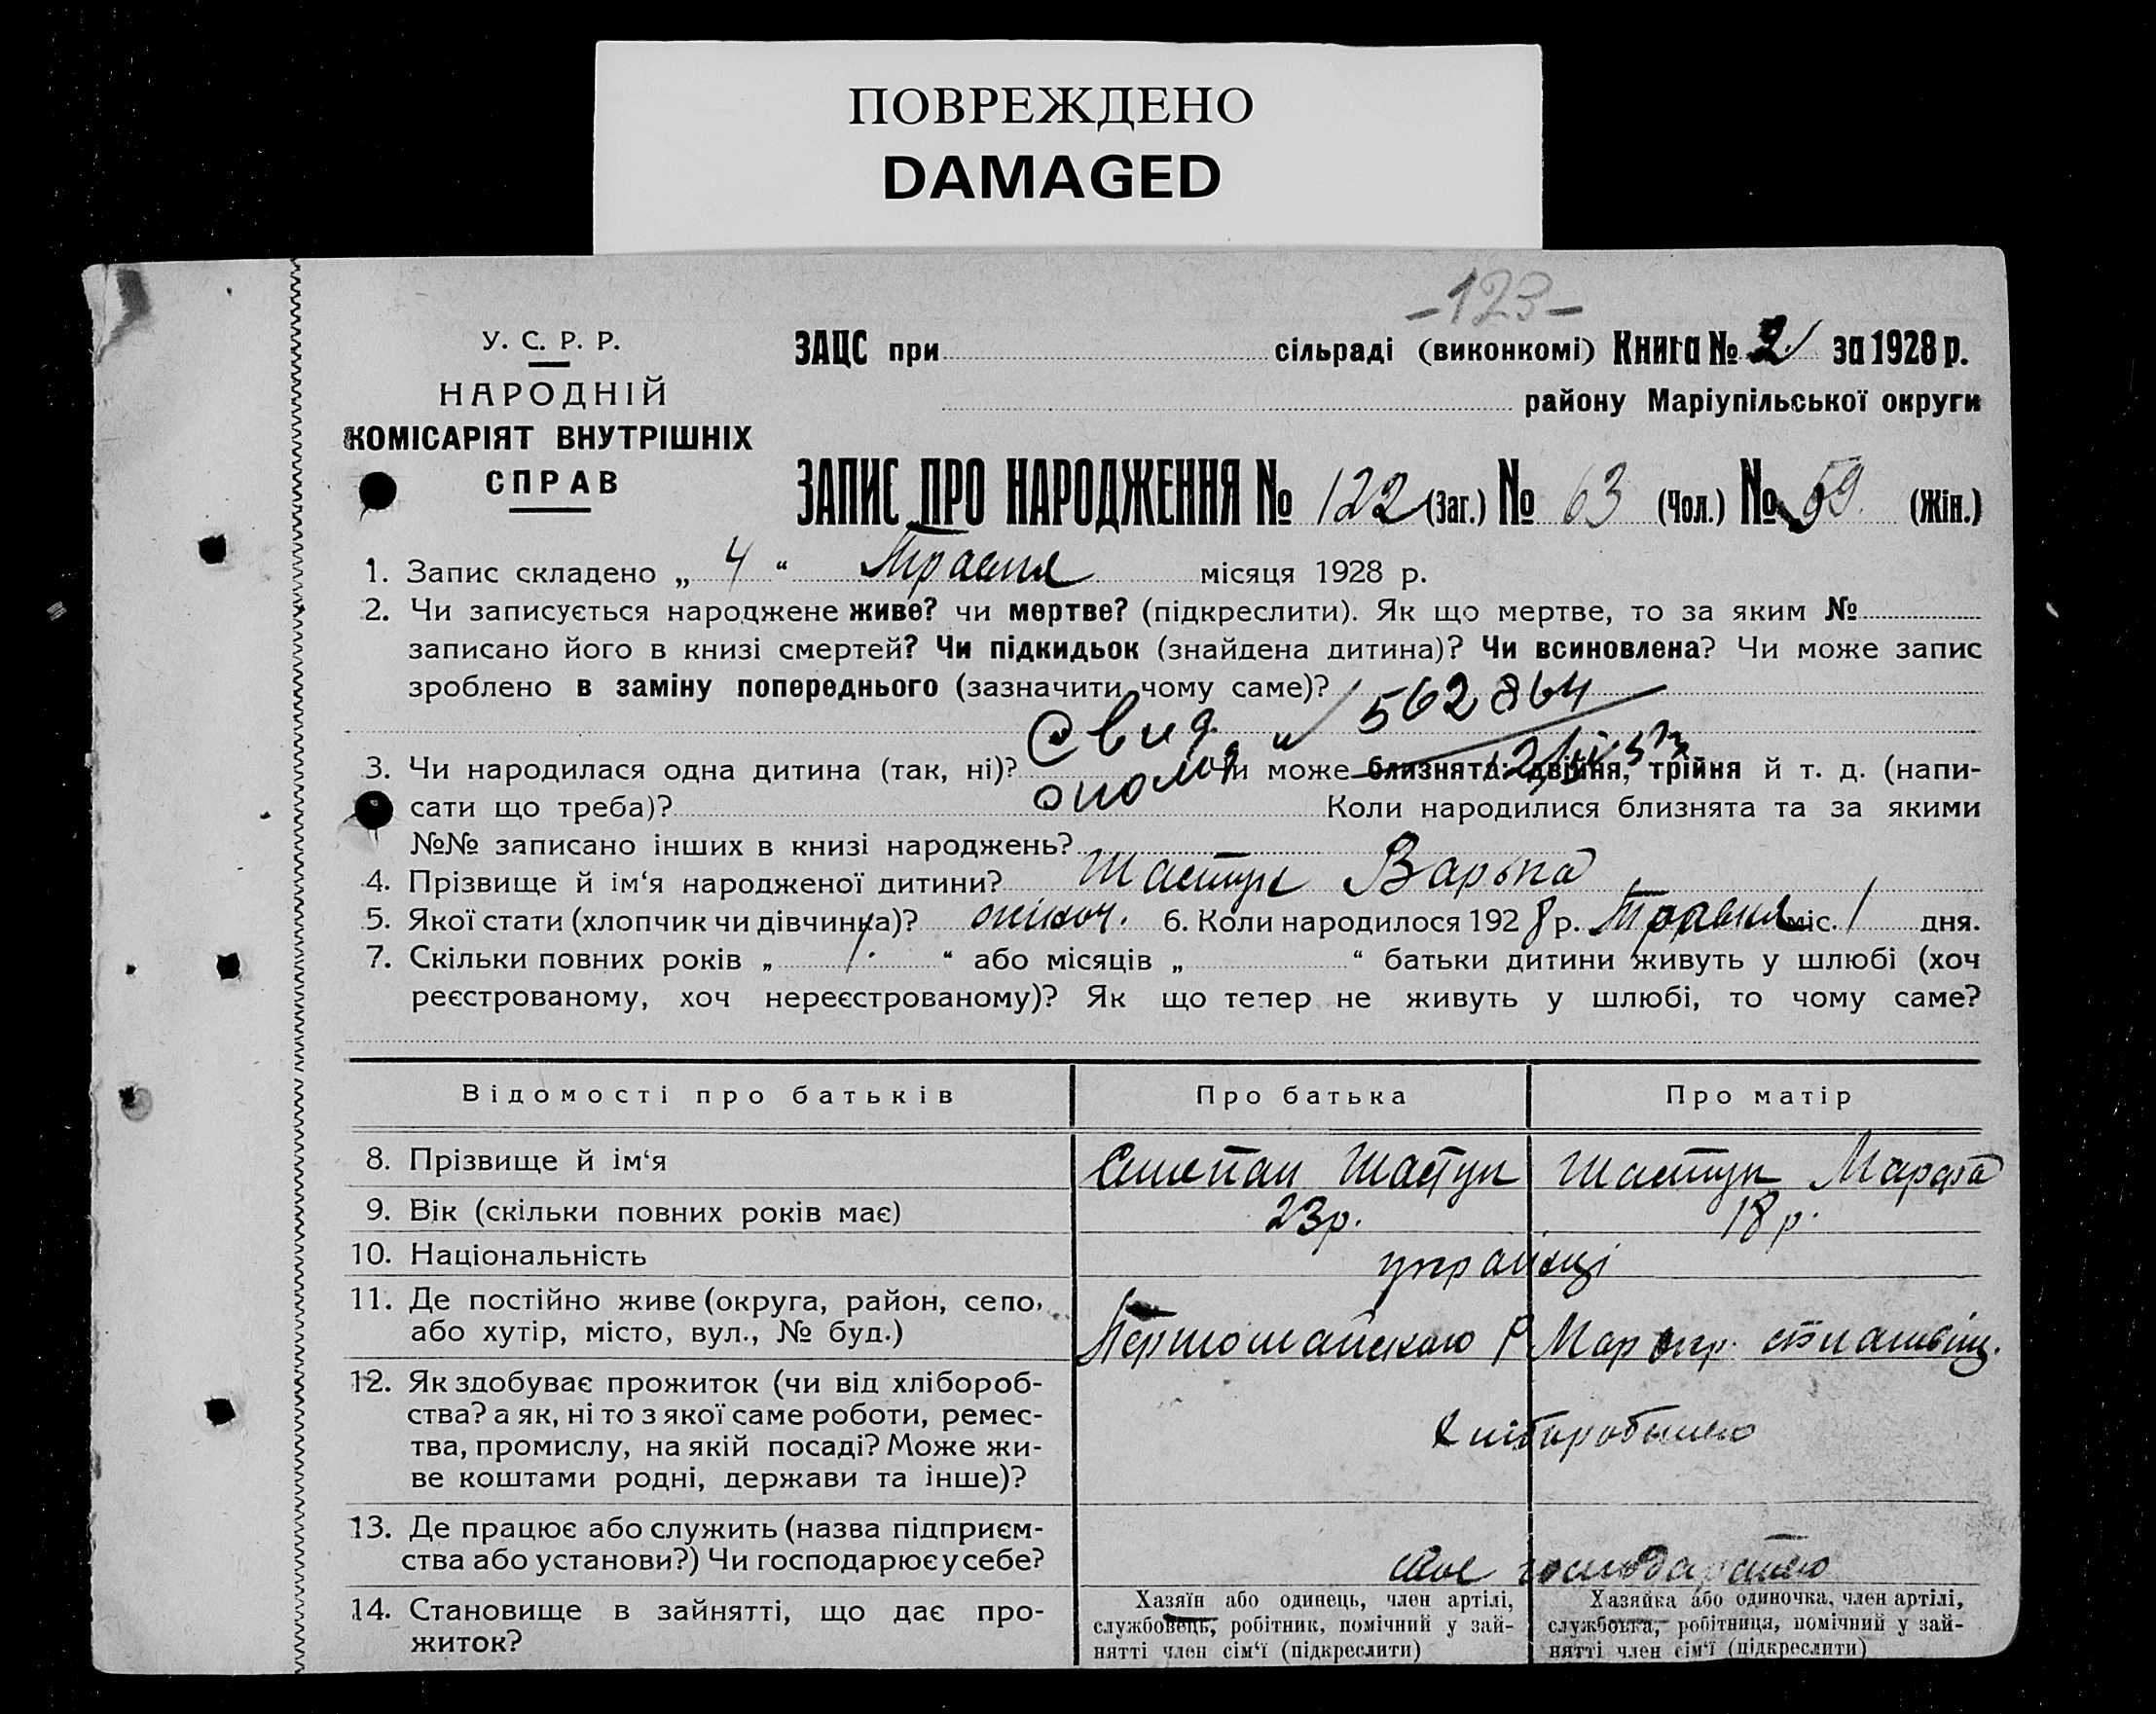 ПОВРЕЖДЕНО
DAMAGED
-123-
У. С. Р. Р.
НАРОДНІЙ
КОМІСАРІЯТ ВНУТРІШНІХ
СПРАВ
ЗАЦС при сільраді (виконкомі) Книга № 2 за 1928 р.
району Маріупільської округи
ЗАПИС ПРО НАРОДЖЕННЯ № 122 (Заг.) № 63 (Чол.) № 59 (Жін.)
1. Запис складено „ 4 “ Травня місяця 1928 р.
2. Чи записується народжене живе? чи мертве? (підкреслити). Як що мертве, то за яким №
записано його в книзі смертей? Чи підкидьок (знайдена дитина)? Чи всиновлена? Чи може запис
зроблено в заміну попереднього (зазначити чому саме)?
Свид. 562864
3. Чи народилася одна дитина (так, ні)? Чи може близнята: двійня, трійня й т. д. (напи-
сати що треба)? Коли народилися близнята та за якими
№№ записано інших в книзі народжень?
4. Прізвище й ім‘я народженої дитини? Шастук Варька
5. Якої стати (хлопчик чи дівчинка)? жіноч. 6. Коли народилося 1928 р. Травня міс. 1 дня.
7. Скільки повних років „ 1. “ або місяців „ “ батьки дитини живуть у шлюбі (хоч
реєстрованому, хоч нереєстрованому)? Як що тепер не живуть у шлюбі, то чому саме?
Відомості про батьків Про батька Про матір
8. Прізвище й ім‘я Степан Шастук Шастук Марфа
9. Вік (скільки повних років має) 23 р. 18 р.
10. Національність українці
11. Де постійно живе (округа, район, село,
або хутір, місто, вул., № буд.) Першомайського Р Мар окр.
12. Як здобуває прожиток (чи від хлібороб-
ства? а як, ні то з якої саме роботи, ремес-
тва, промислу, на якій посаді? Може жи-
ве коштами родні, держави та інше)?
Хліборобство
13. Де працює або служить (назва підприєм-
ства або установи?) Чи господарює у себе?
своє господарство
14. Становище в зайнятті, що дає про-
житок?
Хазяїн або одинець, член артілі,
службовець, робітник, помічний у зай-
нятті член сім‘ї (підкреслити)
Хазяйка або одиночка, член артілі,
службовка, робітниця, помічний у зай-
нятті член сім‘ї (підкреслити)